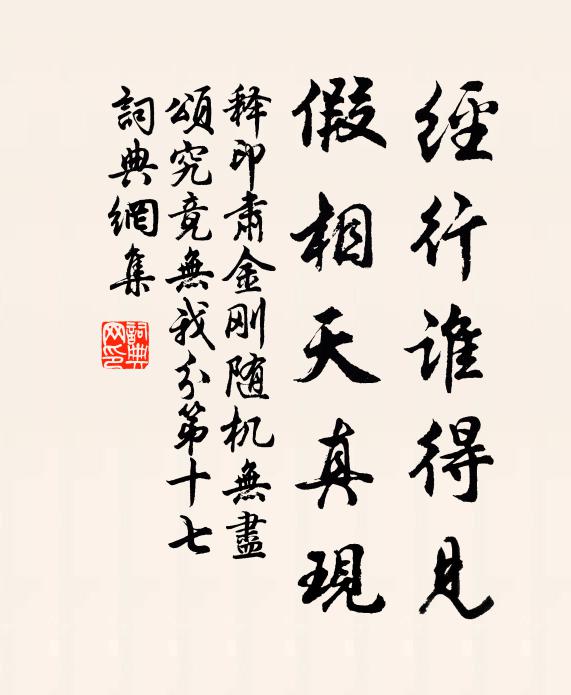 經行誰得見
假相天真現
释印肃金刚随机無盡
頌究竟無我分第十七
詞典網集
詞典網印